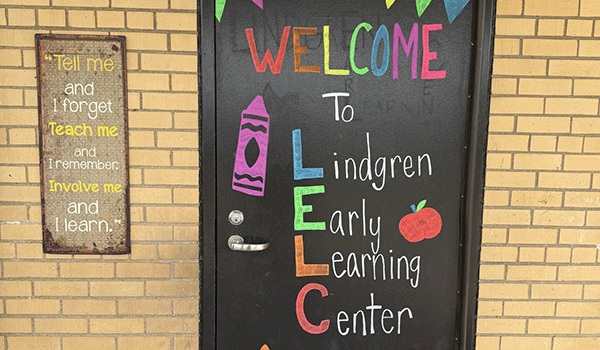 "Tell me
and
I forget
Teach me
and
I remember.
Involve me
and
I learn."
WELCOME
To
Lindgren
Early
Learning
Center